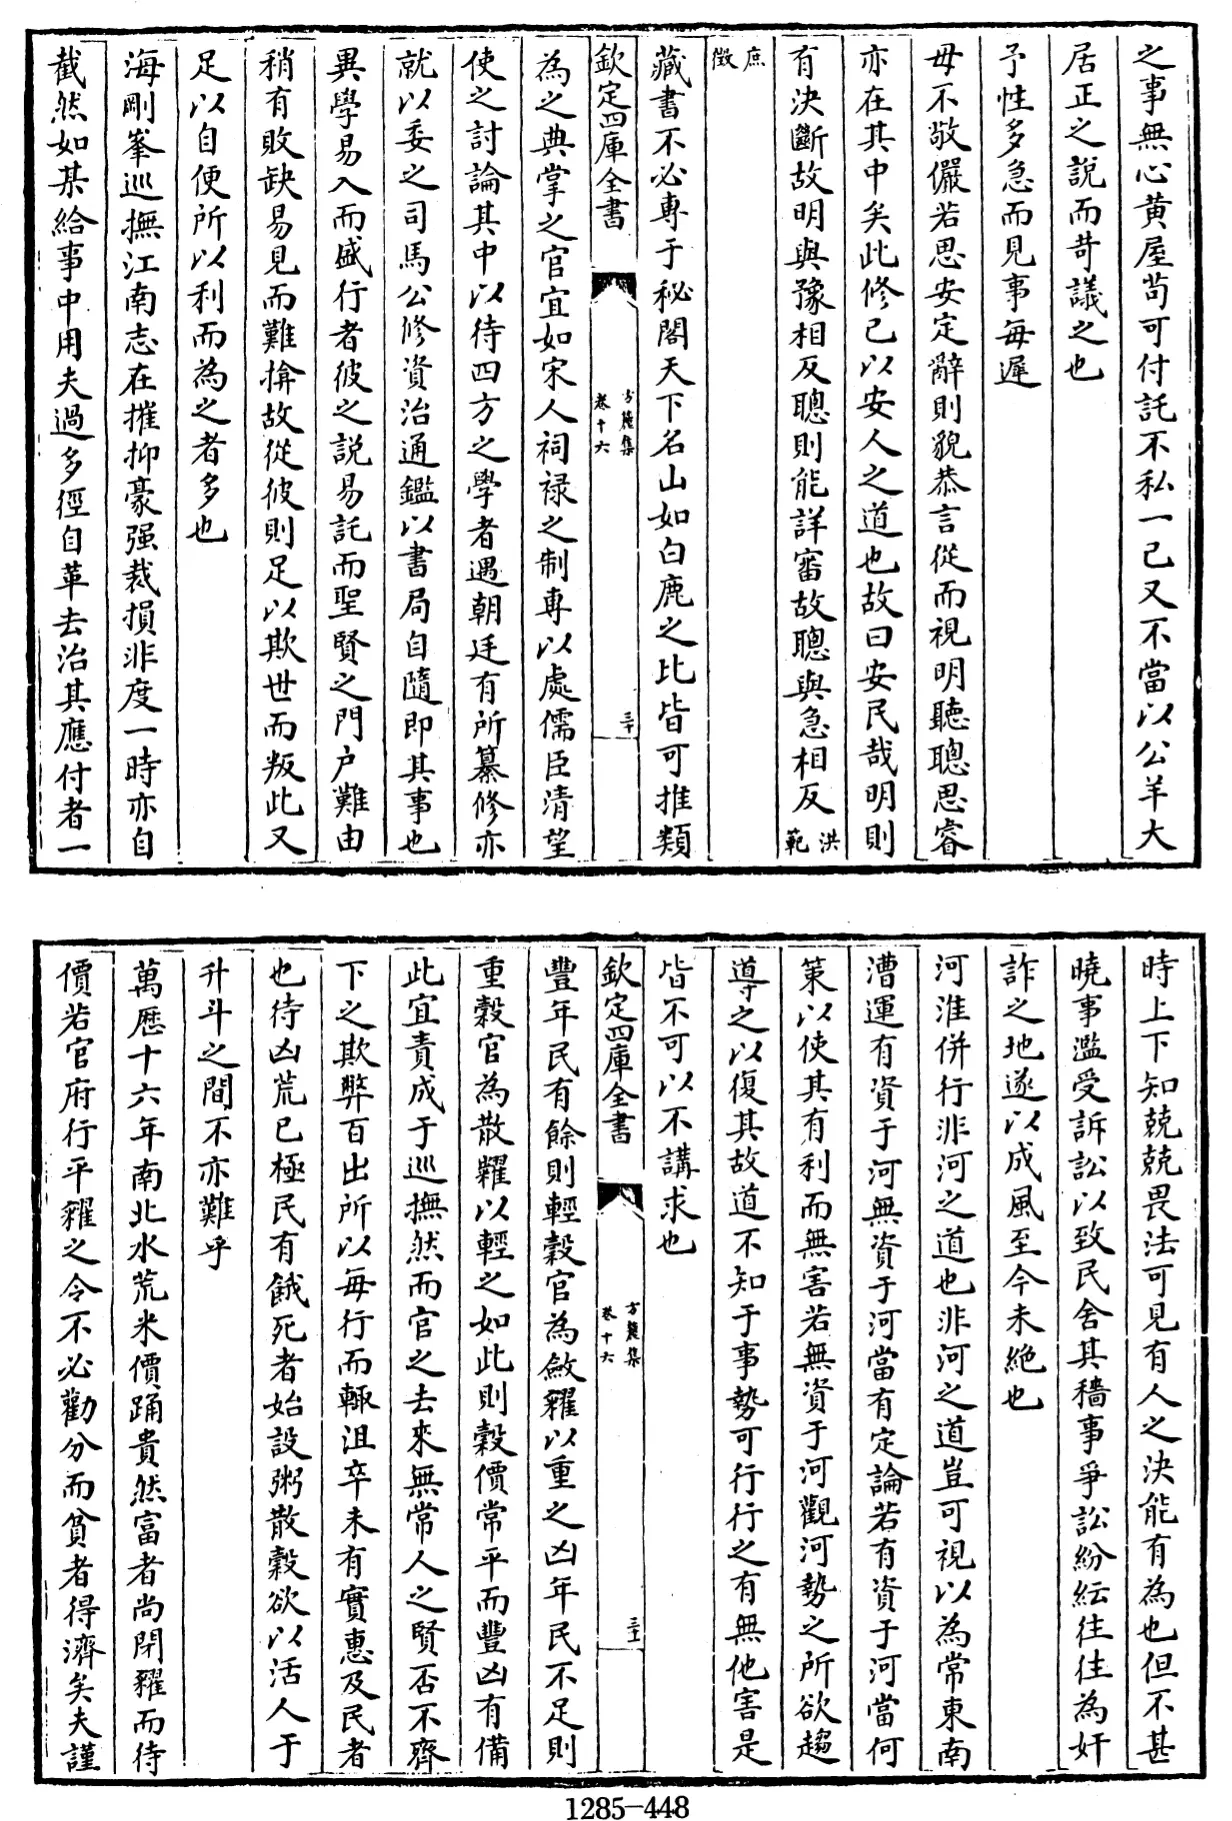 之事無心黄屋苟可付託不私一己又不當以公羊大
居正之說而苛議之也
予性多急而見事每遲
毋不敬儼若思安定辭則貌恭言從而視明聽聰思睿
亦在其中矣此修己以安人之道也故曰安民哉明則
有決斷故明與豫相反聰則能詳審故聰與急相反洪範
庶徴
藏書不必專于秘閣天下名山如白鹿之比皆可推類
欽定四庫全書
方麓集
卷十六
三十
為之典掌之官宜如宋人祠禄之制專以處儒臣清望
使之討論其中以待四方之學者遇朝廷有所纂修亦
就以委之司馬公修資治通鑑以書局自隨即其事也
異學易入而盛行者彼之說易託而聖賢之門户難由
稍有敗缺易見而難揜故從彼則足以欺世而叛此又
足以自便所以利而為之者多也
海剛峯巡撫江南志在摧抑豪强裁損非度一時亦自
截然如某給事中用夫過多徑自革去治其應付者一
時上下知兢兢畏法可見有人之決能有為也但不甚
曉事濫受訴訟以致民舍其穡事爭訟紛紜往往為奸
詐之地遂以成風至今未絶也
河淮併行非河之道也非河之道豈可視以為常東南
漕運有資于河無資于河當有定論若有資于河當何
策以使其有利而無害若無資于河觀河勢之所欲趨
導之以復其故道不知于事勢可行行之有無他害是
皆不可以不講求也
欽定四庫全書
方麓集
卷十六
三十一
豐年民有餘則輕穀官為斂糴以重之凶年民不足則
重穀官為散糶以輕之如此則穀價常平而豐凶有備
此宜責成于巡撫然而官之去來無常人之賢否不齊
下之欺弊百出所以每行而輙沮卒未有實惠及民者
也待凶荒已極民有餓死者始設粥散穀欲以活人于
升斗之間不亦難乎
萬歷十六年南北水荒米價踊貴然富者尚閉糴而待
價若官府行平糴之令不必勸分而貧者得濟矣夫謹
1285-448